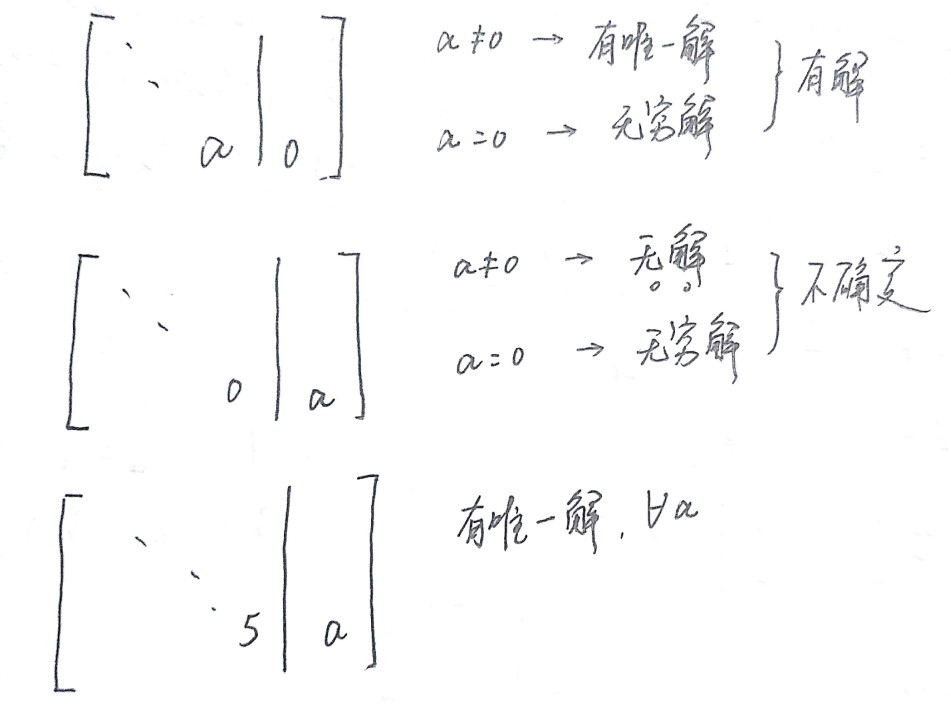 a≠0 → 有唯一解
a=0 → 无穷解
} 有解
a | 0
a≠0 → 无解
a=0 → 无穷解
} 不确定
0 | a
有唯一解, ∀a
5 | a